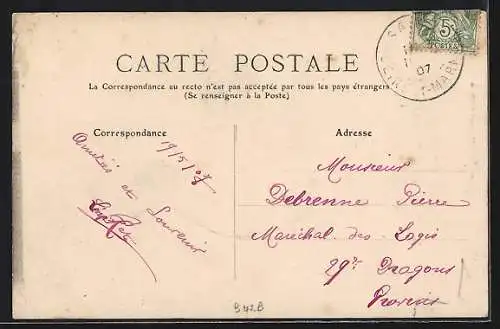 5c
POSTES
07
CARTE POSTALE
La Correspondance au recto n'est pas acceptée par tous les pays étrangers
(Se renseigner à la Poste)
Correspondance
Adresse
19/5/07
Amitiés et Souvenir
Monsieur
Debrenne Pierre
Maréchal-des-Logis
29e Dragons
Provins
B42B